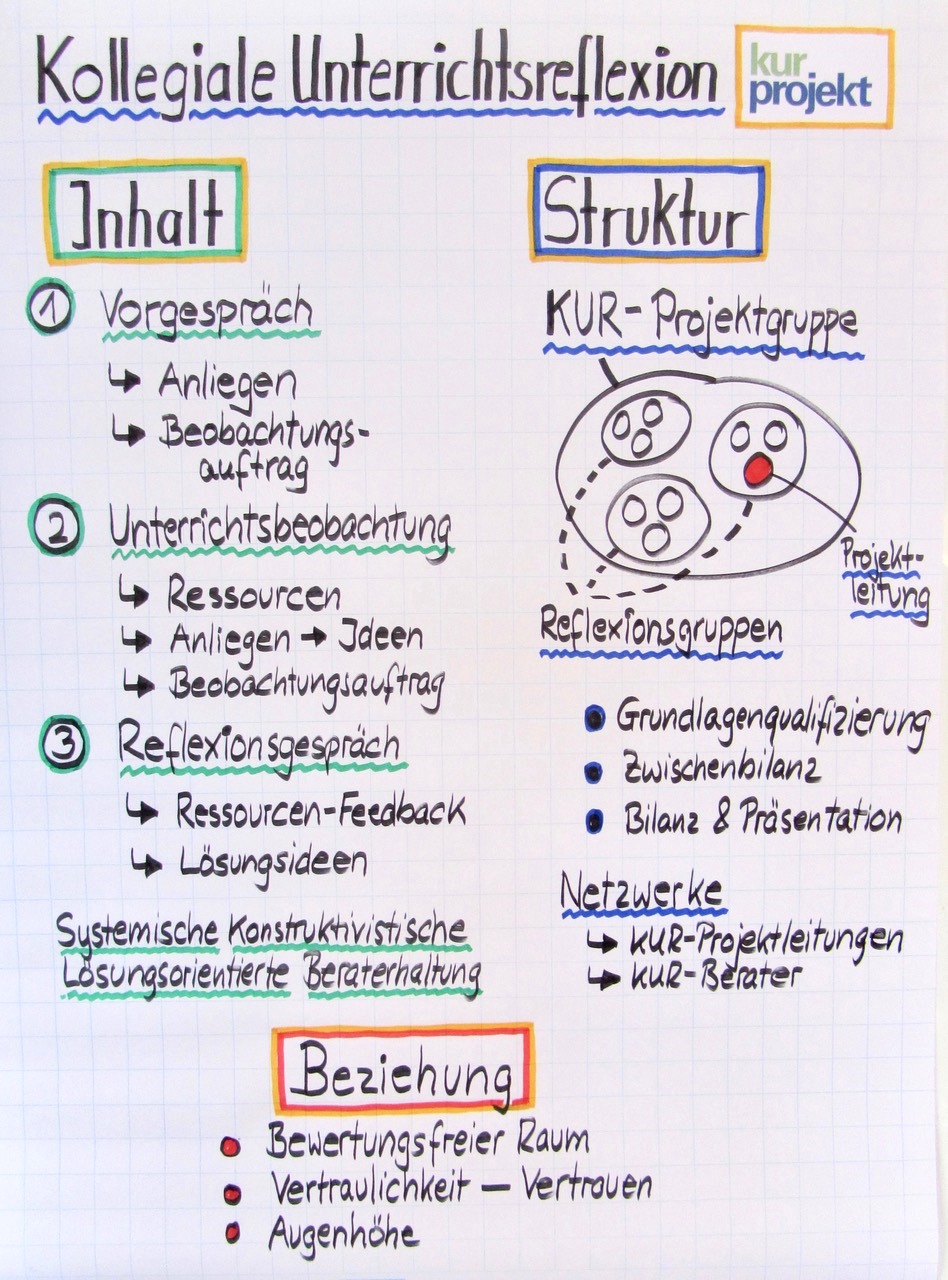 Kollegiale Unterrichtsreflexion
kur
projekt
Inhalt
1 Vorgespräch
↳ Anliegen
↳ Beobachtungs-
auftrag
2 Unterrichtsbeobachtung
↳ Ressourcen
↳ Anliegen → Ideen
↳ Beobachtungsauftrag
3 Reflexionsgespräch
↳ Ressourcen-Feedback
↳ Lösungsideen
Systemische Konstruktivistische
Lösungsorientierte Beraterhaltung
Struktur
KUR-Projektgruppe
Projekt-
leitung
Reflexionsgruppen
• Grundlagenqualifizierung
• Zwischenbilanz
• Bilanz & Präsentation
Netzwerke
↳ KUR-Projektleitungen
↳ KUR-Berater
Beziehung
• Bewertungsfreier Raum
• Vertraulichkeit — Vertrauen
• Augenhöhe